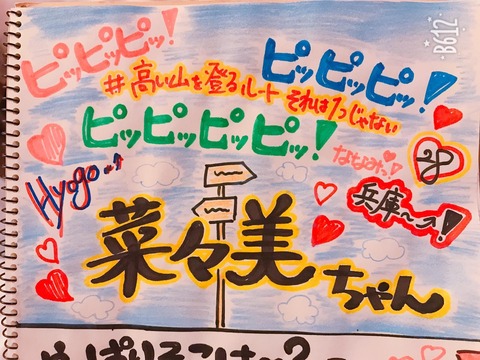 ピッピッピッ!
ピッピッピッ!
#高い山を登るルートそれは1つじゃない
ピッピッピッピッ!
ななみっ!
28
Hyogo~↑
兵庫〜↗!
菜々美ちゃん
B612